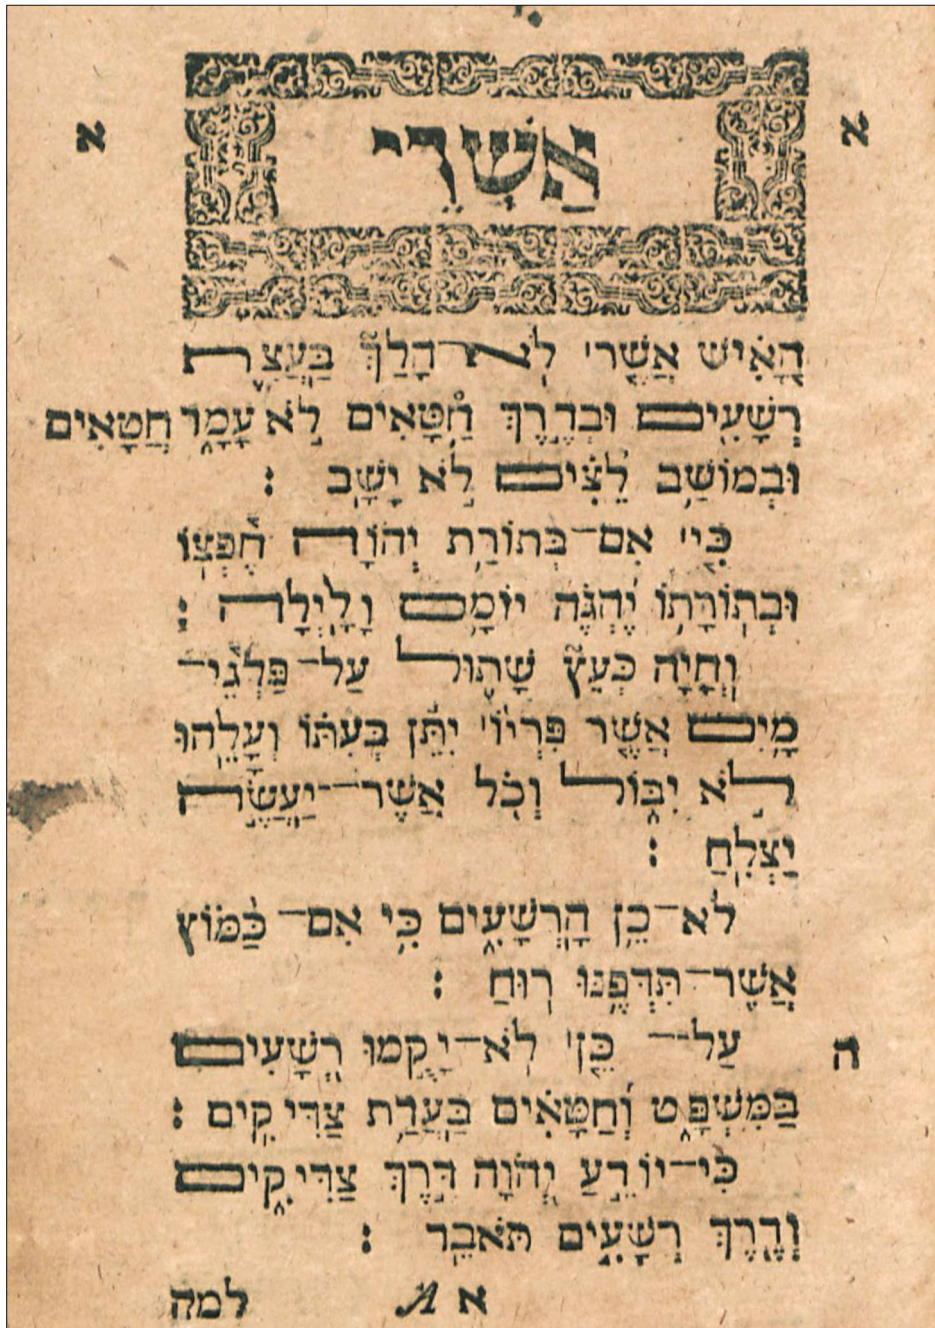 א א
אַשְׁרֵי
הָאִישׁ אֲשֶׁר לֹא הָלַךְ בַּעֲצַת
רְשָׁעִים וּבְדֶרֶךְ חַטָּאִים לֹא עָמָד חַטָּאִים
וּבְמוֹשַׁב לֵצִים לֹא יָשָׁב :
כִּי אִם־בְּתוֹרַת יְהוָֹה חֶפְצוֹ
וּבְתוֹרָתוֹ יֶהְגֶּה יוֹמָם וָלָיְלָה :
וְהָיָה כְּעֵץ שָׁתוּל עַל־פַּלְגֵי־
מָיִם אֲשֶׁר פִּרְיוֹ יִתֵּן בְּעִתּוֹ וְעָלֵהוּ
לֹא יִבּוֹל וְכֹל אֲשֶׁר־יַעֲשֶׂה
יַצְלִחַ :
לֹא־כֵן הָרְשָׁעִים כִּי אִם־כַּמּוֹץ
אֲשֶׁר־תִּדְּפֶנּוּ רוּחַ :
ה עַל־כֵּן לֹא־יָקֻמוּ רְשָׁעִים
בַּמִּשְׁפָּט וְחַטָּאִים בַּעֲדַת צַדִּיקִים :
כִּי־יוֹדֵעַ יְהוָֹה דֶּרֶךְ צַדִּיקִים
וְדֶרֶךְ רְשָׁעִים תֹּאבֵד :
א A למה